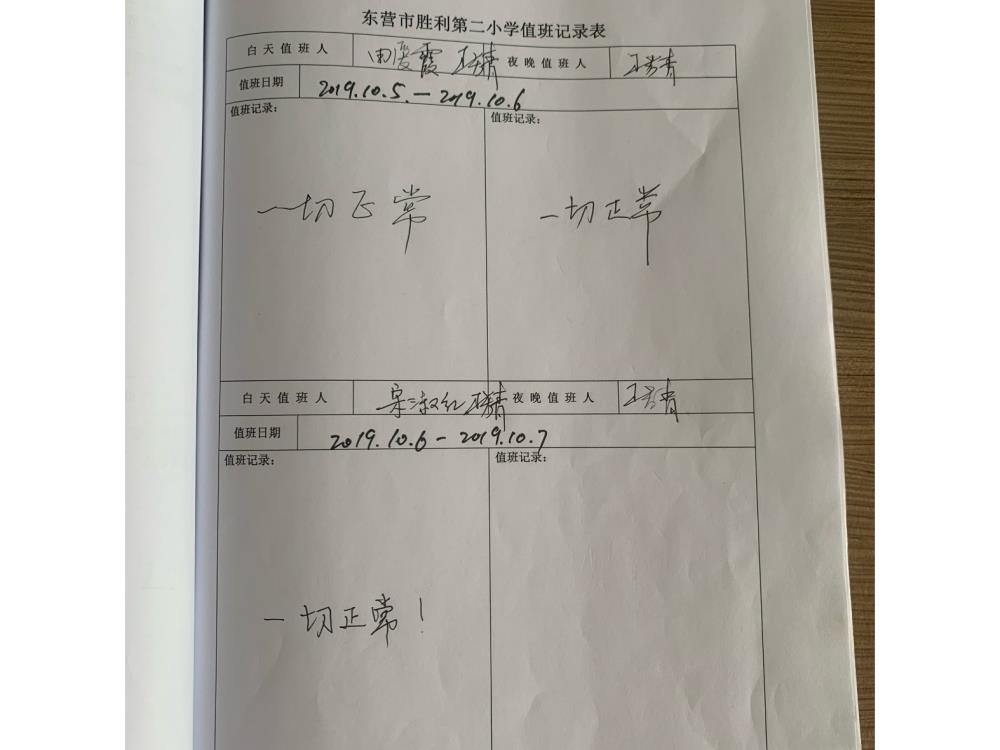 东营市胜利第二小学值班记录表
白天值班人 田爱霞 夜晚值班人
值班日期 2019.10.5.—2019.10.6
值班记录: 值班记录:
一切正常 一切正常
白天值班人 宋淑红 夜晚值班人
值班日期 2019.10.6-2019.10.7
值班记录: 值班记录:
一切正常!